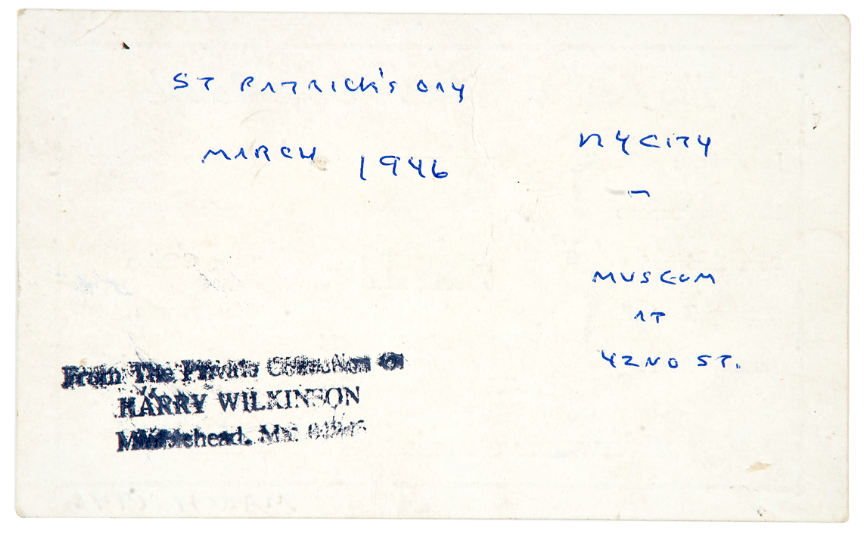 ST PATRICK'S DAY
MARCH 1946
NY CITY
~
MUSEUM
AT
42ND ST.
From The Private Collection of
HARRY WILKINSON
Marblehead, MA